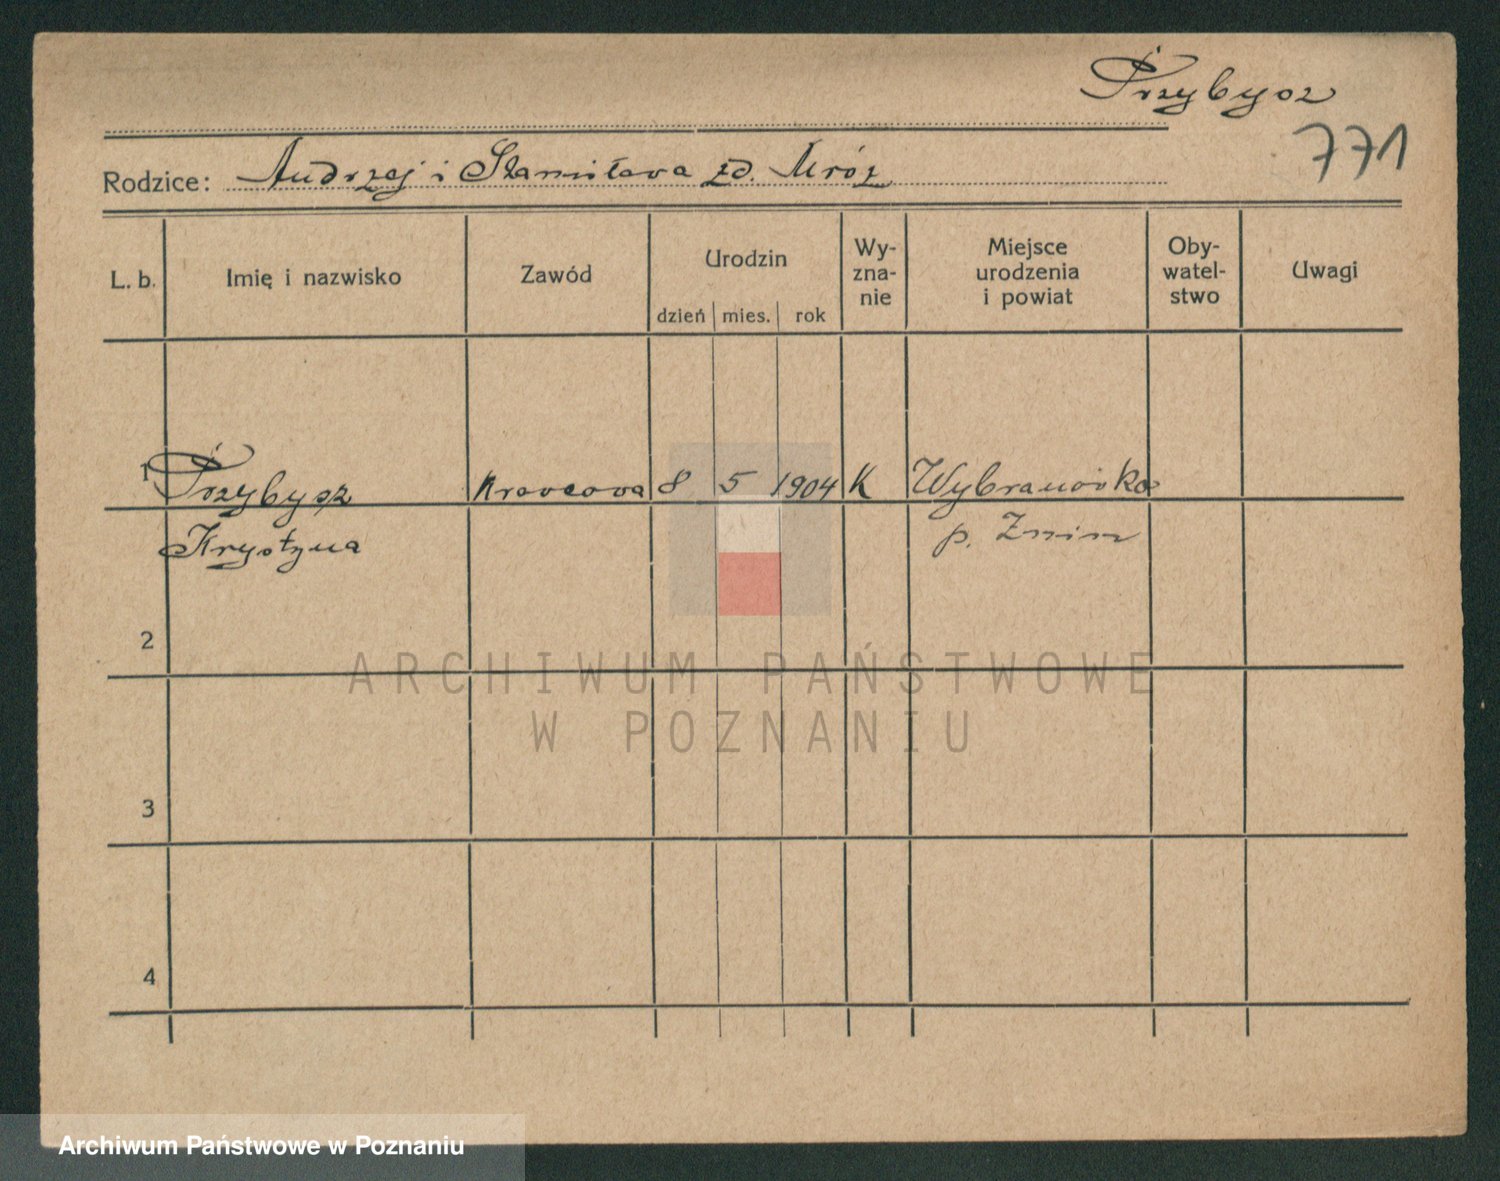 Przybysz
771
Rodzice: Andrzej i Stanisława zd. Mróz
L. b. Imię i nazwisko Zawód Urodzin dzień mies. rok Wy-zna-nie Miejsce urodzenia i powiat Oby-watel-stwo Uwagi
1 Przybysz Krawcowa 8 5 1904 K Wybranówka
Krystyna p. Żnin
2
3
4
ARCHIWUM PAŃSTWOWE
W POZNANIU
Archiwum Państwowe w Poznaniu